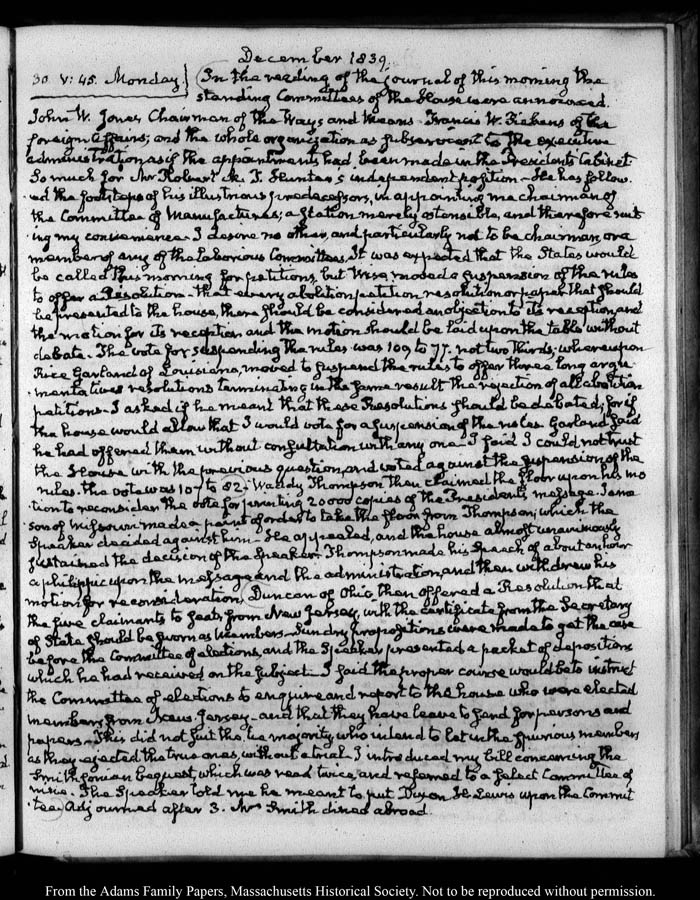 December 1839.
30. V: 45. Monday. In the reading of the journal of this morning the
standing Committees of the House were announced.
John W. Jones Chairman of the Ways and Means - Francis W. Pickens of the
foreign affairs; and the whole organization as subservient to the executive
administration as if the appointments had been made in the President's Cabinet
So much for Mr Robert M. T. Hunter's independent position - He has follow
-ed the footsteps of his illustrious predecessors, in appointing me chairman of
the Committee of Manufactures; a station merely ostensible, and therefore suit
ing my convenience. I desire no other, and particularly not to be chairman, or a
member of any of the laborious Committees. It was expected that the States would
be called this morning for petitions, but Wise moved a suspension of the rules
to offer a Resolution - that every abolition petition resolution or paper that should
be presented to the house, there should be considered an objection to its reception, and
the motion for its reception and the motion should be laid upon the table without
debate. The vote for suspending the rules was 109 to 77. not two thirds; whereupon
Rice Garland of Louisiana, moved to suspend the rules to offer three long argu
-mentatives resolutions terminating in the same result the rejection of all abolition
petitions - I asked if he meant that these Resolutions should be debated, for if
the house would allow that I would vote for a suspension of the rules. Garland said
he had offered them without consultation with any one - I said I could not trust
the House with the previous question, and voted against the suspension of the
rules. the vote was 107 to 82. Waddy Thompson then claimed the floor upon his mo
tion to reconsider the vote for printing 20000 copies of the President's message. Jame
son of Missouri made a point of order to take the floor from Thompson, which the
Speaker decided against him - He appealed, and the house almost unanimously
sustained the decision of the Speaker. Thompson made his Speech of about an hour
a philippic upon the message and the administration, and then withdrew his
motion for reconsideration. Duncan of Ohio, then offered a Resolution that
the five claimants to seats from New Jersey, with the certificate from the Secretary
of State should be sworn as Members - Sundry propositions were made to get the case
before the Committee of elections, and the Speaker presented a packet of depositions
which he had received on the subject - I said the proper course would be to instruct
the Committee of elections to enquire and report to the house who were elected
members from New Jersey - and that they have leave to send for persons and
papers - This did not suit the majority, who intend to let in the spurious members
as they ejected the true ones, without a trial. I introduced my bill concerning the
Smithsonian bequest, which was read twice, and referred to a select Committee of
nine. The Speaker told me he meant to put Dixon H. Lewis upon the Commit
-tee. Adjourned after 3. Mr Smith dined abroad.
From the Adams Family Papers, Massachusetts Historical Society. Not to be reproduced without permission.